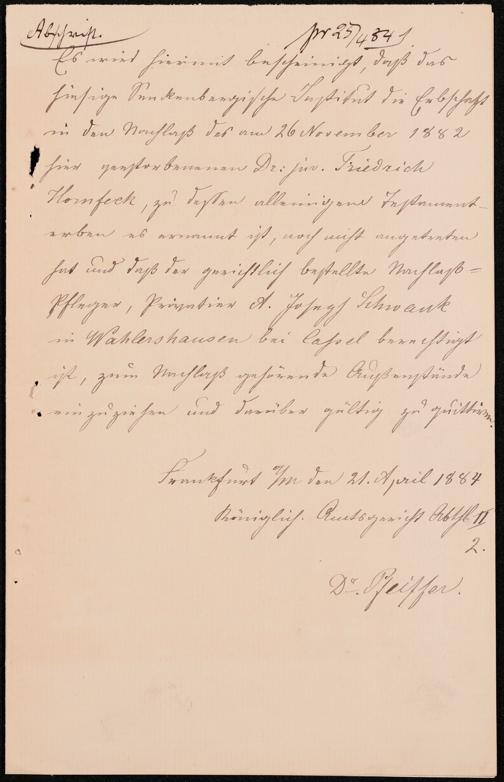 Abschrift.
pr 25/4 84
Es wird hiermit bescheinigt, daß das
hiesige Senkenbergische Institut die Erbschaft
in den Nachlaß des am 26 November 1882
hier verstorbenenen Dr: jur. Friedrich
Homfeck, zu dessen alleinigen Testament-
erben es ernannt ist, noch nicht angetreten
hat und daß der gerichtlich bestellte Nachlaß=
Pfleger, Privatier A. Joseph Schwank
in Wahlershausen bei Cassel berechtigt
ist, zum Nachlaß gehörende Außenstände
einzuziehen und darüber gültig zu quittiren.
Frankfurt a/m den 21. April 1884
Königlich. Amtsgericht Abthl. II
2.
Dr. Pfeiffer.